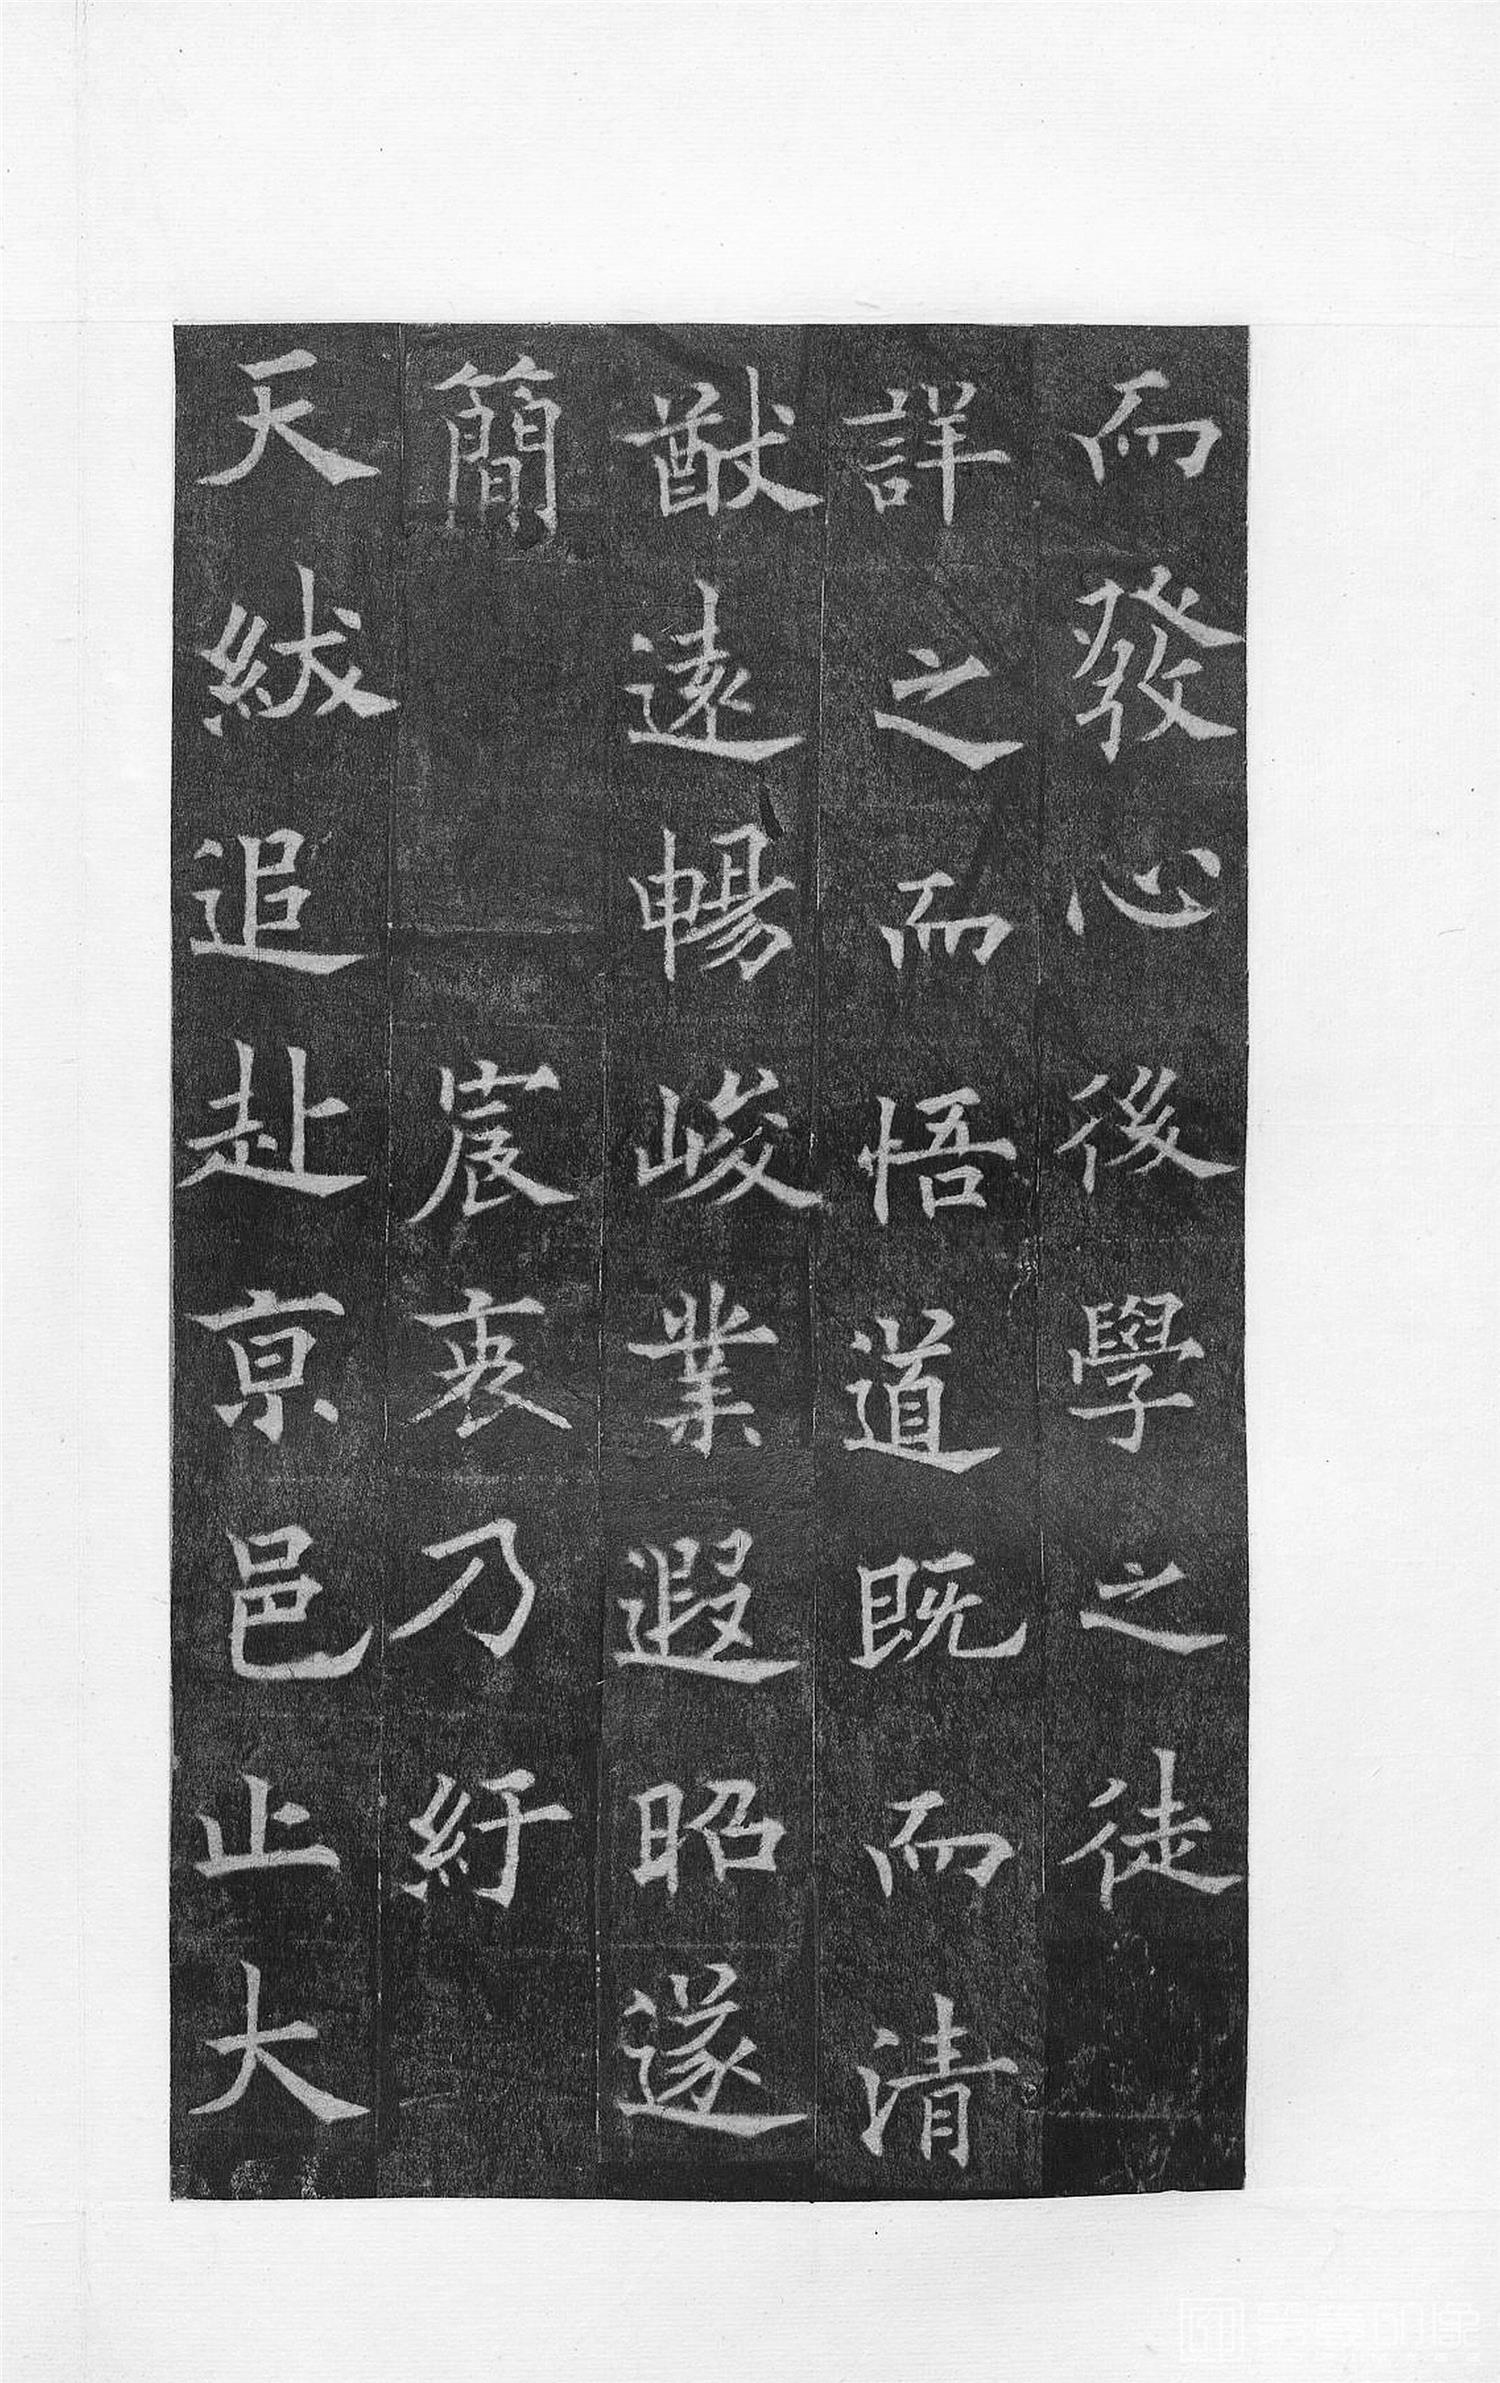 而發心後學之徒
詳之而悟道既而清
猷遠暢峻業遐昭遂
簡　宸衷乃紆
天紱追赴京邑止大